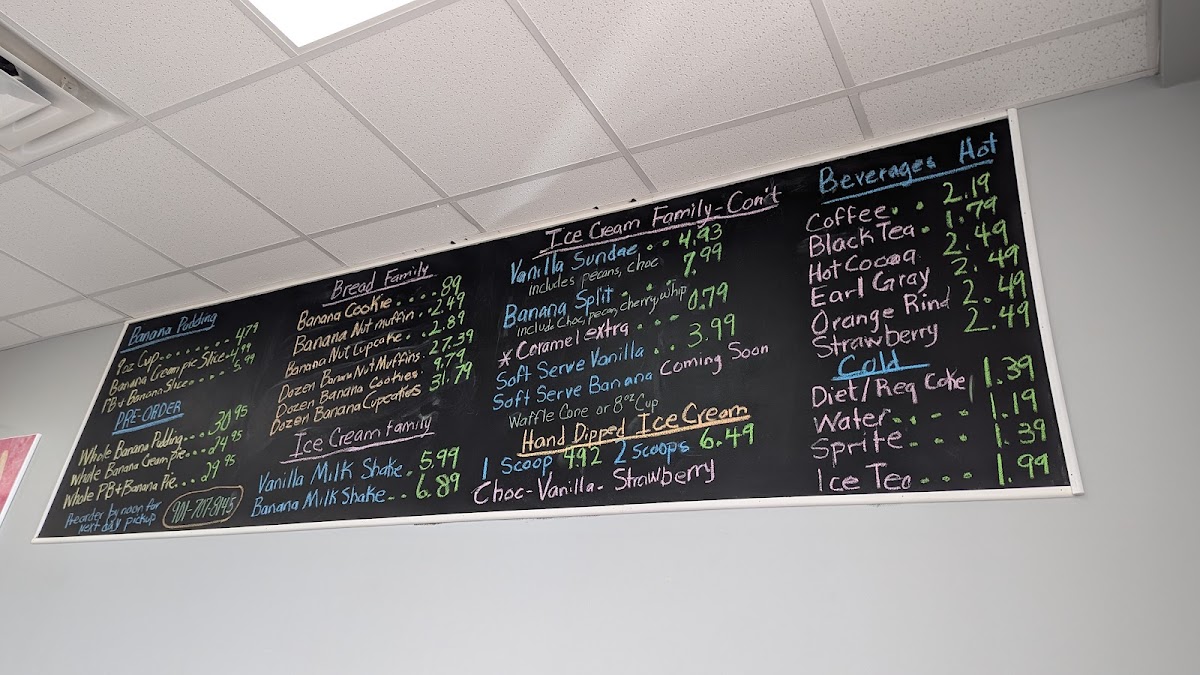 Banana Pudding
9oz Cup........ 4.79
Banana Cream pie Slice.. 4.99
PB+Banana Slice.... 5.99
PRE-ORDER
Whole Banana Pudding... 30.95
Whole Banana Cream pie... 24.95
Whole PB+Banana Pie... 29.95
Preorder by noon for
next day pickup
901-707-8145
Bread Family
Banana Cookie.... .89
Banana Nut muffin.. 2.49
Banana Nut Cupcake.. 2.89
Dozen Banana Nut Muffins. 27.39
Dozen Banana Cookies. 9.79
Dozen Banana Cupcakes 31.79
Ice Cream family
Vanilla Milk Shake. 5.99
Banana Milk Shake.. 6.89
Ice Cream Family-Con't
Vanilla Sundae.. 4.93
includes pecans, choc
Banana Split.... 7.99
include Choc, pecan, cherry, whip
* Caramel extra... 0.79
Soft Serve Vanilla.. 3.99
Soft Serve Banana Coming Soon
Waffle Cone or 8oz Cup
Hand Dipped Ice Cream
1 Scoop 4.92 2 Scoops 6.49
Choc-Vanilla- Strawberry
Beverages Hot
Coffee.. 2.19
Black Tea. 1.79
Hot Cocoa 2.49
Earl Gray 2.49
Orange Rind 2.49
Strawberry 2.49
Cold
Diet/Reg Coke 1.39
Water.... 1.19
Sprite... 1.39
Ice Tea... 1.99